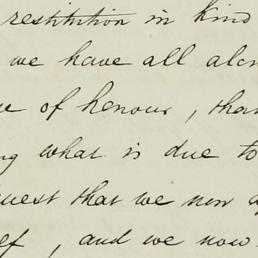 restitution in kind
we have all
of honour, than
what is due to
that we now
, and we now